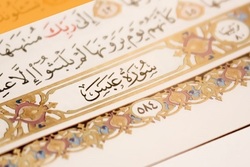 إِلَىٰ رَبِّكَ مُنتَهَىٰهَآ
كَأَنَّهُمْ يَوْمَ يَرَوْنَهَا لَمْ يَلْبَثُوٓا۟ إِلَّا
سُورَةُ عَبَسَ
٥٨٤